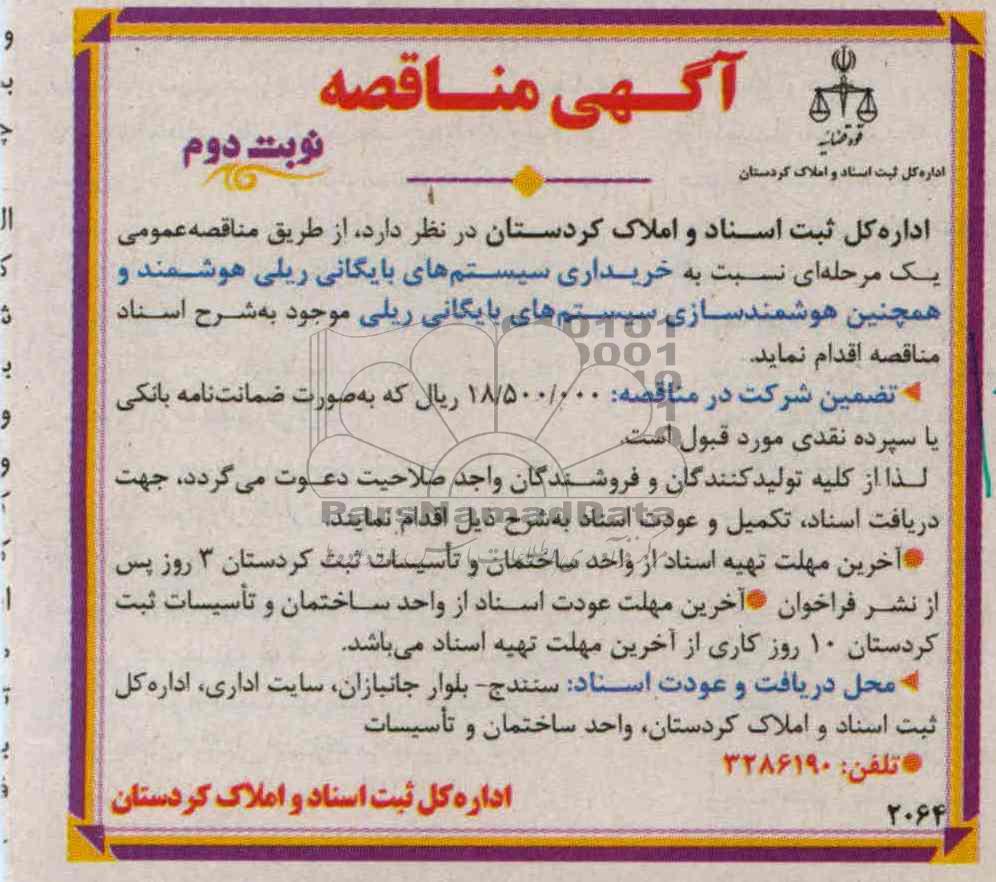 آگهی مناقصه
نوبت دوم
قوه قضائیه
اداره‌کل ثبت اسناد و املاک کردستان
اداره‌کل ثبت اسناد و املاک کردستان در نظر دارد، از طریق مناقصه‌عمومی
یک مرحله‌ای نسبت به خریداری سیستم‌های بایگانی ریلی هوشمند و
همچنین هوشمندسازی سیستم‌های بایگانی ریلی موجود به‌شرح اسناد
مناقصه اقدام نماید.
تضمین شرکت در مناقصه: ۱۸/۵۰۰/۰۰۰ ریال که به‌صورت ضمانت‌نامه بانکی
یا سپرده نقدی مورد قبول است.
لذا از کلیه تولیدکنندگان و فروشندگان واجد صلاحیت دعوت می‌گردد، جهت
دریافت اسناد، تکمیل و عودت اسناد به‌شرح ذیل اقدام نمایند.
ParsNamadData
آخرین مهلت تهیه اسناد از واحد ساختمان و تأسیسات ثبت کردستان ۳ روز پس
از نشر فراخوان ●آخرین مهلت عودت اسناد از واحد ساختمان و تأسیسات ثبت
کردستان ۱۰ روز کاری از آخرین مهلت تهیه اسناد می‌باشد.
محل دریافت و عودت اسناد: سنندج- بلوار جانبازان، سایت اداری، اداره‌کل
ثبت اسناد و املاک کردستان، واحد ساختمان و تأسیسات
●تلفن: ۳۲۸۶۱۹۰
اداره‌کل ثبت اسناد و املاک کردستان
۲۰۶۴